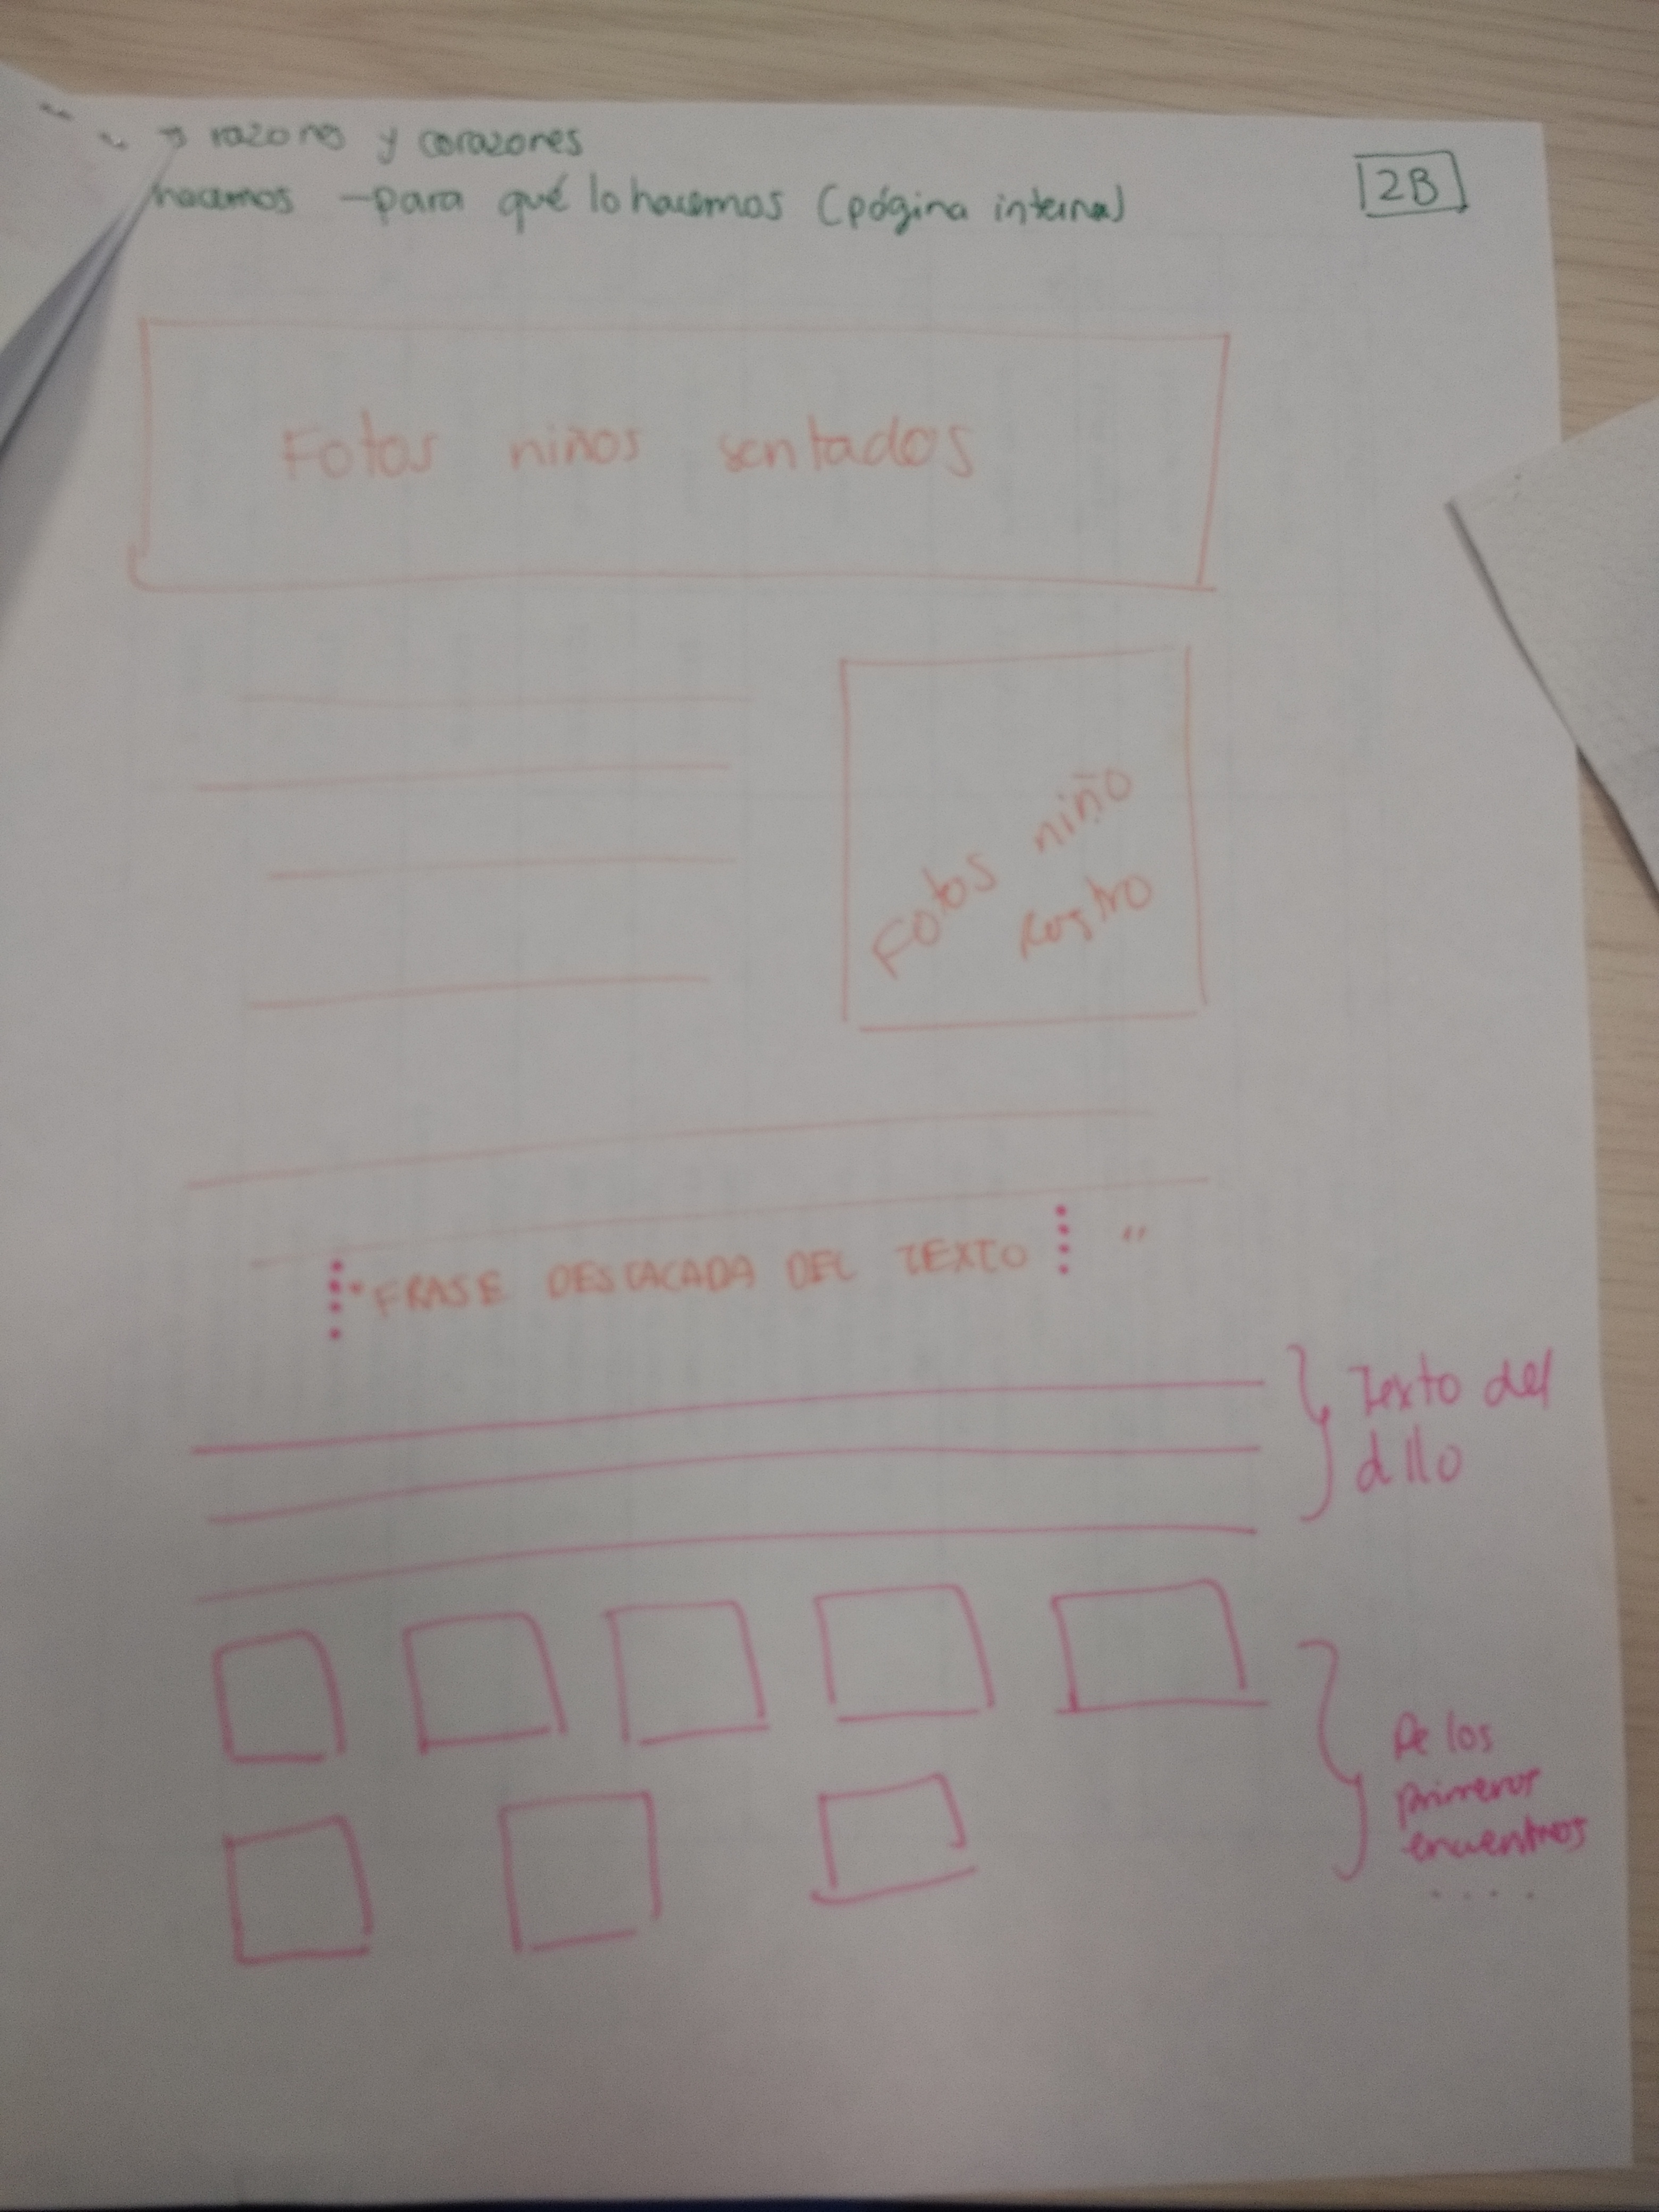 razones y corazones
hacemos - para qué lo hacemos (página interna)
2B
Fotos niños sentados
Fotos niño
Rostro
"FRASE DESTACADA DEL TEXTO "
Texto del
d llo
De los
primeros
encuentros
....